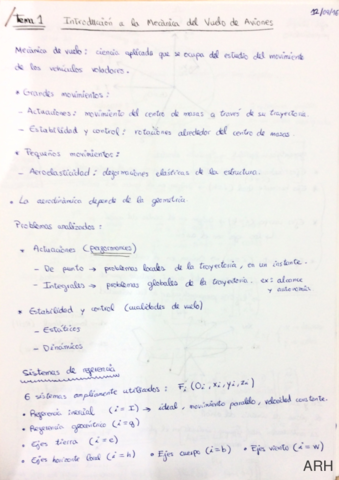 Tema 1 Introducción a la Mecánica del Vuelo de Aviones
Mecánica de vuelo: ciencia aplicada que se ocupa del estudio del movimiento
de los vehículos voladores.
* Grandes movimientos:
- Actuaciones: movimiento del centro de masas a través de su trayectoria.
- Estabilidad y control: rotaciones alrededor del centro de masas.
* Pequeños movimientos:
- Aeroelasticidad: deformaciones elásticas de la estructura.
* La aerodinámica depende de la geometría
Problemas analizados:
* Actuaciones (performances)
- De punto → problemas locales de la trayectoria, en un instante.
- Integrales → problemas globales de la trayectoria. ex: alcance
y autonomía
* Estabilidad y control (cualidades de vuelo)
- Estáticos
- Dinámicos
Sistemas de referencia
6 sistemas ampliamente utilizados: Fi (Oi, xi, yi, zi)
• Referencia inercial (i = I) → ideal, movimiento paralelo, velocidad constante.
• Referencia geocéntrica (i = g)
• Ejes tierra (i = e)
• Ejes horizonte local (i = h) • Ejes cuerpo (i = b) • Ejes viento (i = w)
ARH